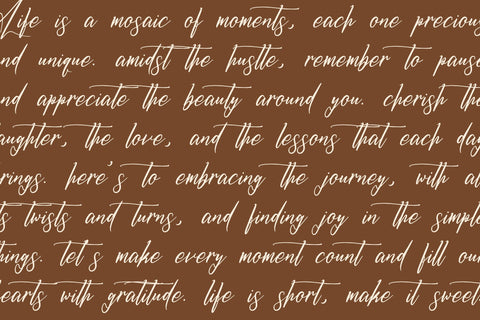 Life is a mosaic of moments, each one precious
nd unique. amidst the hustle, remember to pause
nd appreciate the beauty around you. cherish the
aughter, the love, and the lessons that each day
rings. here's to embracing the journey, with al
ts twists and turns, and finding joy in the simple
hings. let s make every moment count and fill our
earts with gratitude. life is short, make it sweet.